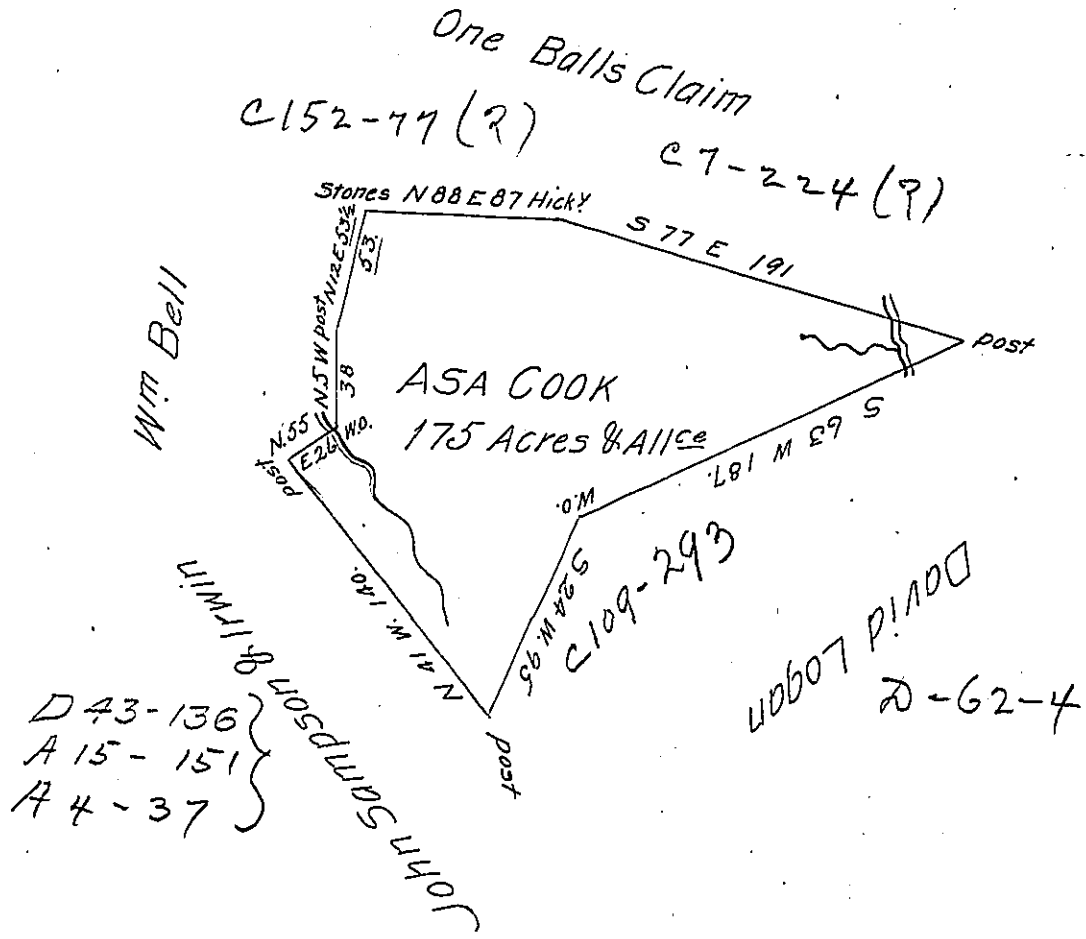 One Balls Claim
C152-77 (?)
C7-224 (?)
Stones N 88 E 87 Hick.y
S 77 E 191
post
N12E 53½
53.
post
N.5 W
38
Wm Bell
ASA COOK
175 Acres & Allce
N.55
E 26
W.O.
post
S 63 W 187.
W.O.
S 24 W. 95
C109-293
N 41 W. 140.
post
David Logan
D-62-4
John Sampson & Irwin
D 43-136
A 15-151
A 4-37